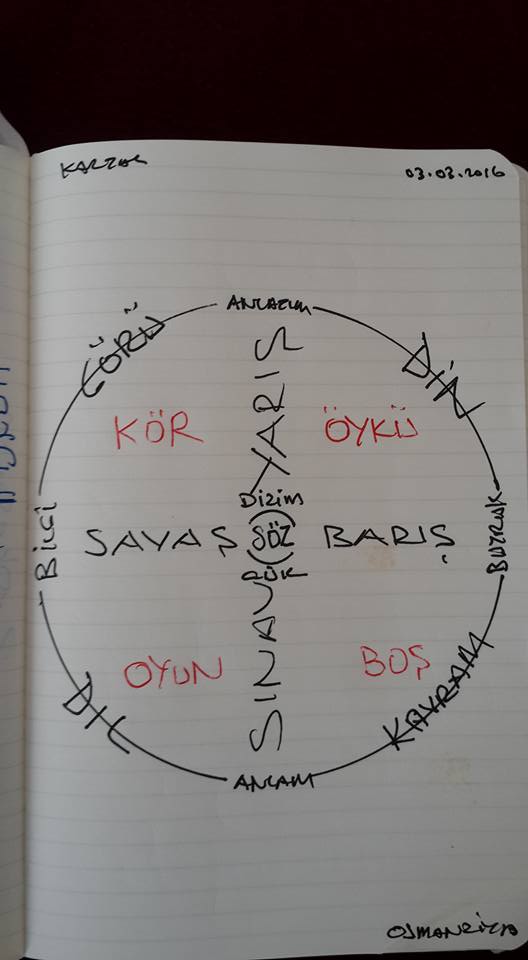 03.03.2016
ANLATIM
GÖRÜ
DİN
YARIŞ
KÖR
ÖYKÜ
Dizim
Bilgi
SAVAŞ
SÖZ
BARIŞ
BUYRUK
SINAV
OYUN
BOŞ
DİL
KAVRAM
ANLAM